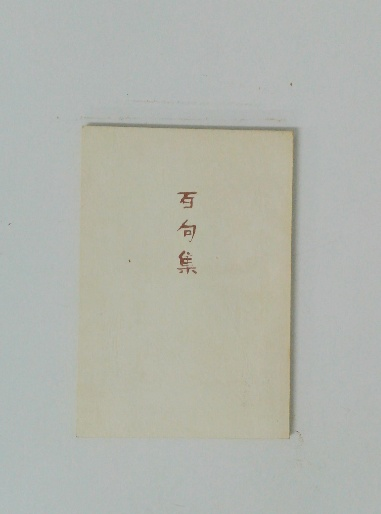 百句集